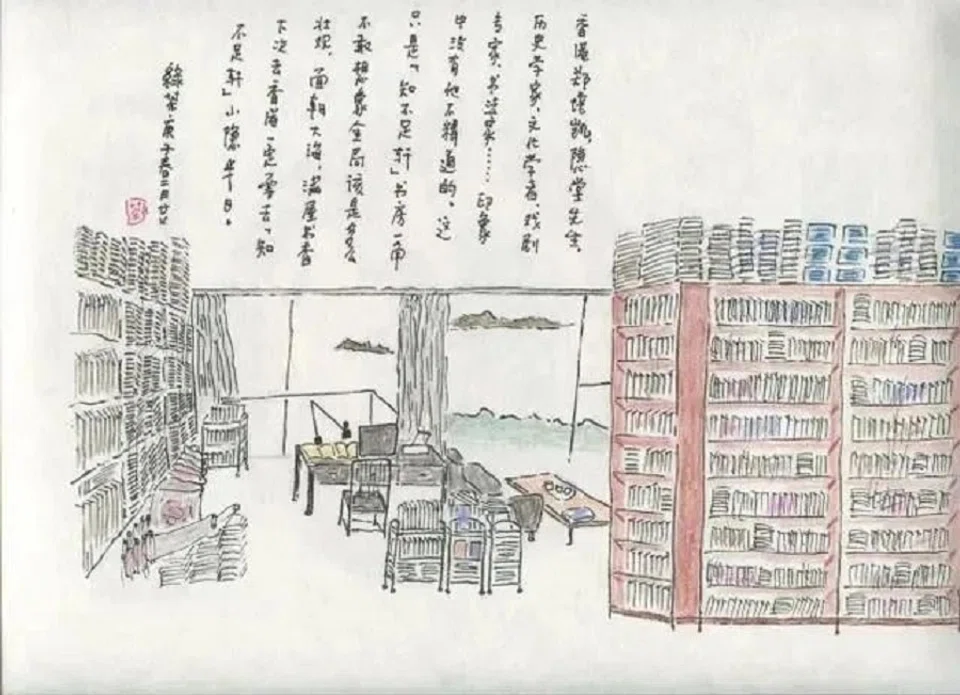 香港郑培凯，隐堂先生，
历史学家、文化学者、戏剧
专家、书法家……印象
中没有他不精通的。这
只是「知不足轩」书房一角
不敢想象全局该是多么
壮观。面朝大海，满屋书香
下次去香港一定要去「知
不足轩」小隐半日。
绿茶庚子春二月廿